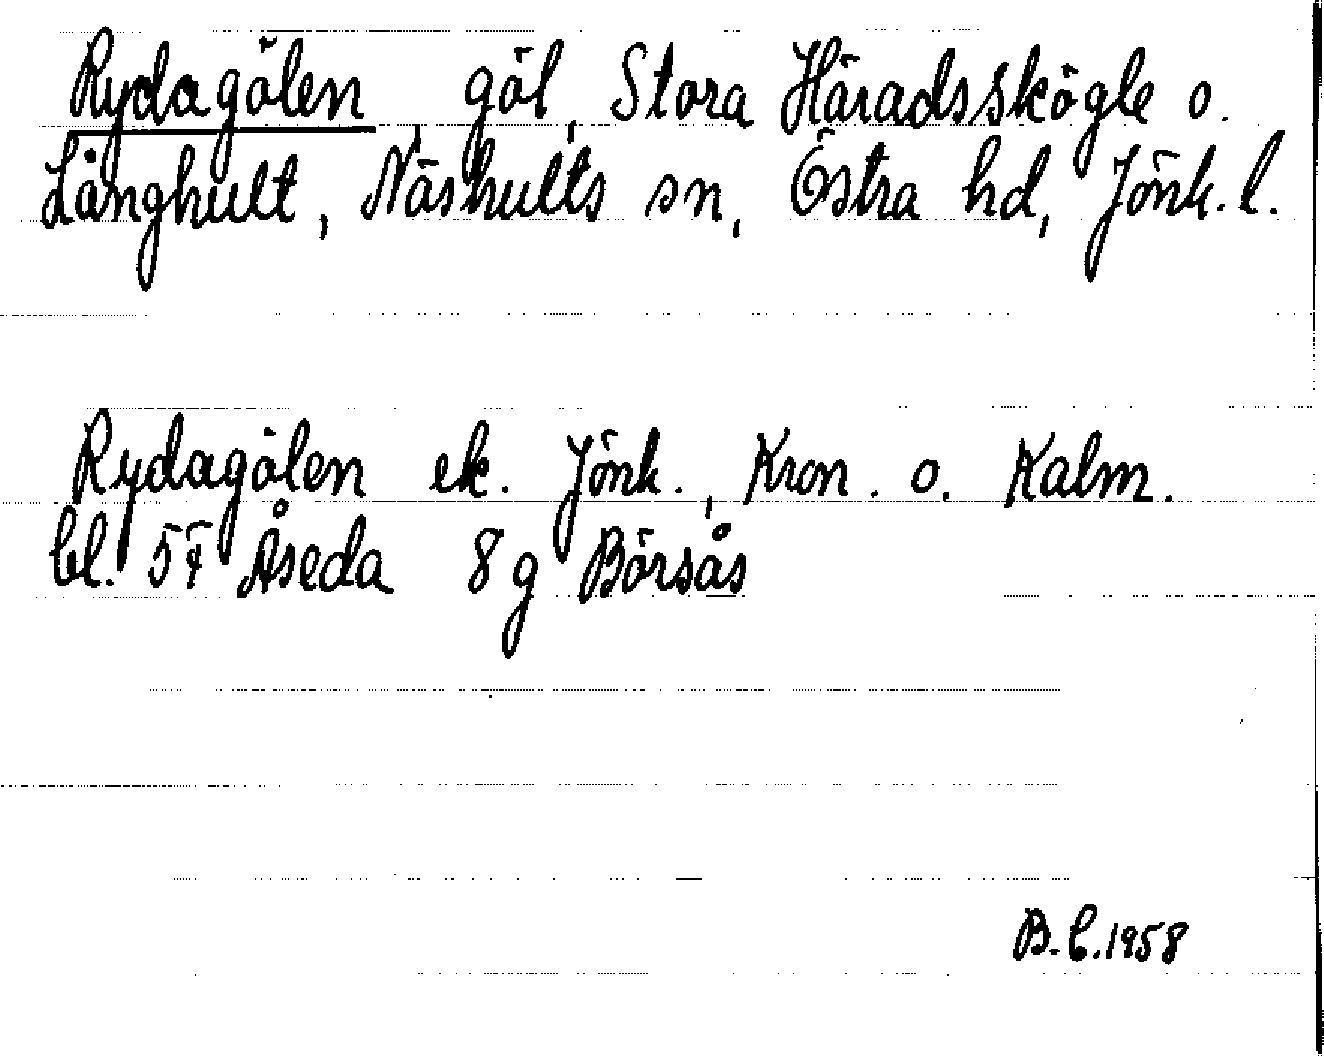 Rydagölen, göl, Stora Häradsskögle o.
Långhult, Näshults sn, Östra hd, Jönk. l.
Rydagölen ek. Jönk., Kron. o. Kalm.
bl. 54 Åseda 8g Börsås
B.C.1958